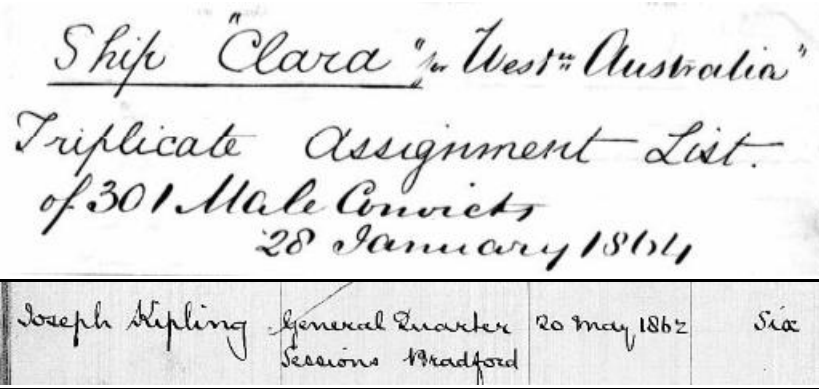 Ship "Clara" for Westn Australia"
Triplicate Assignment List.
of 301 Male Convicts
28 January 1864
Joseph Kipling General Quarter Sessions Bradford 20 May 1862 Six